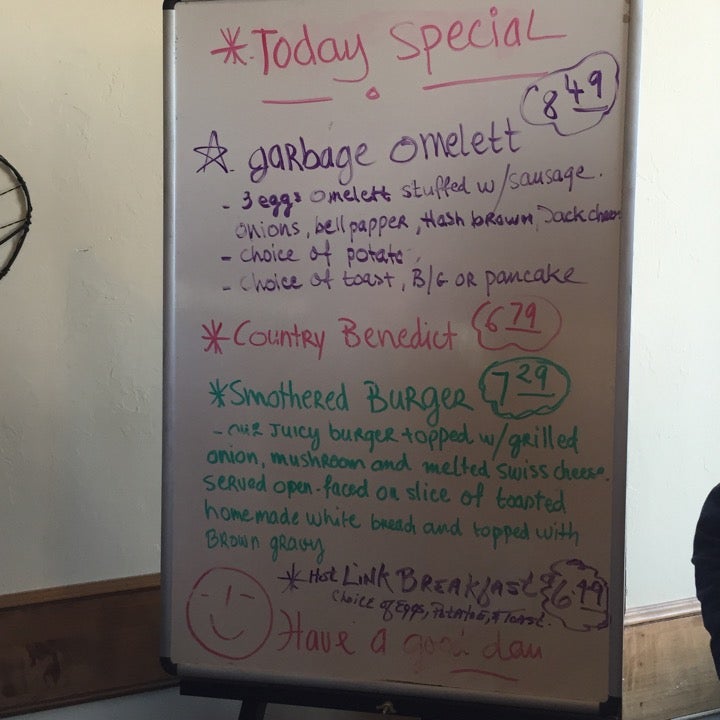 * Today Special
8 49
☆ garbage omelett
- 3 eggs omelett stuffed w/sausage.
onions, bell papper, Hash brown, Jack chees
- choice of potato
- choice of toast, B/G OR pancake
* Country Benedict 6 79
* Smothered Burger 7 29
- our Juicy burger topped w/grilled
onion, mushroom and melted swiss cheese.
Served open-faced on slice of toasted
homemade white bread and topped with
Brown gravy
* Hot LINK BREAKFAST 6.49
Choice of Eggs, Potatoes, & Toast.
Have a good day